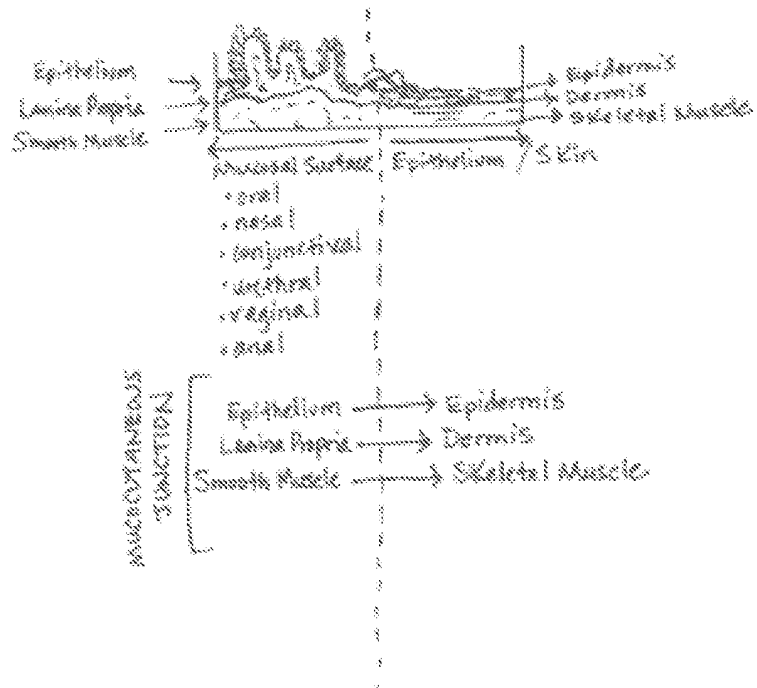 Epithelium
Lamina Propria
Smooth Muscle
Epidermis
Dermis
Skeletal Muscle
Mucosal Surface
Epithelium / Skin
• oral
• nasal
• conjunctival
• urethral
• vaginal
• anal
MUCOCUTANEOUS
JUNCTION
Epithelium → Epidermis
Lamina Propria → Dermis
Smooth Muscle → Skeletal Muscle